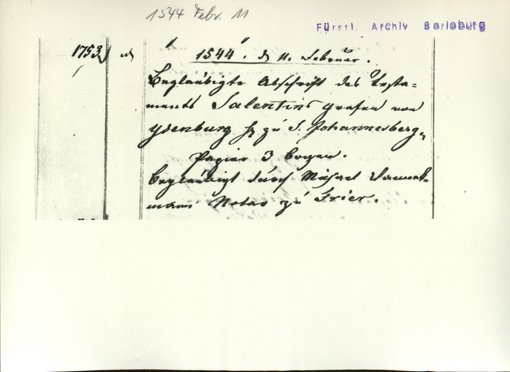 1544 Febr. 11
Fürstl. Archiv Berleburg
1753
1544. d. 11. Februar.
Beglaubigte Abschrift des Testa-
ments Salentins grafen von
Ysenburg H. zu S. Johannesberg,
Papier 3 Bogen.
Beglaubigt durch Michael
Notar zu Trier.